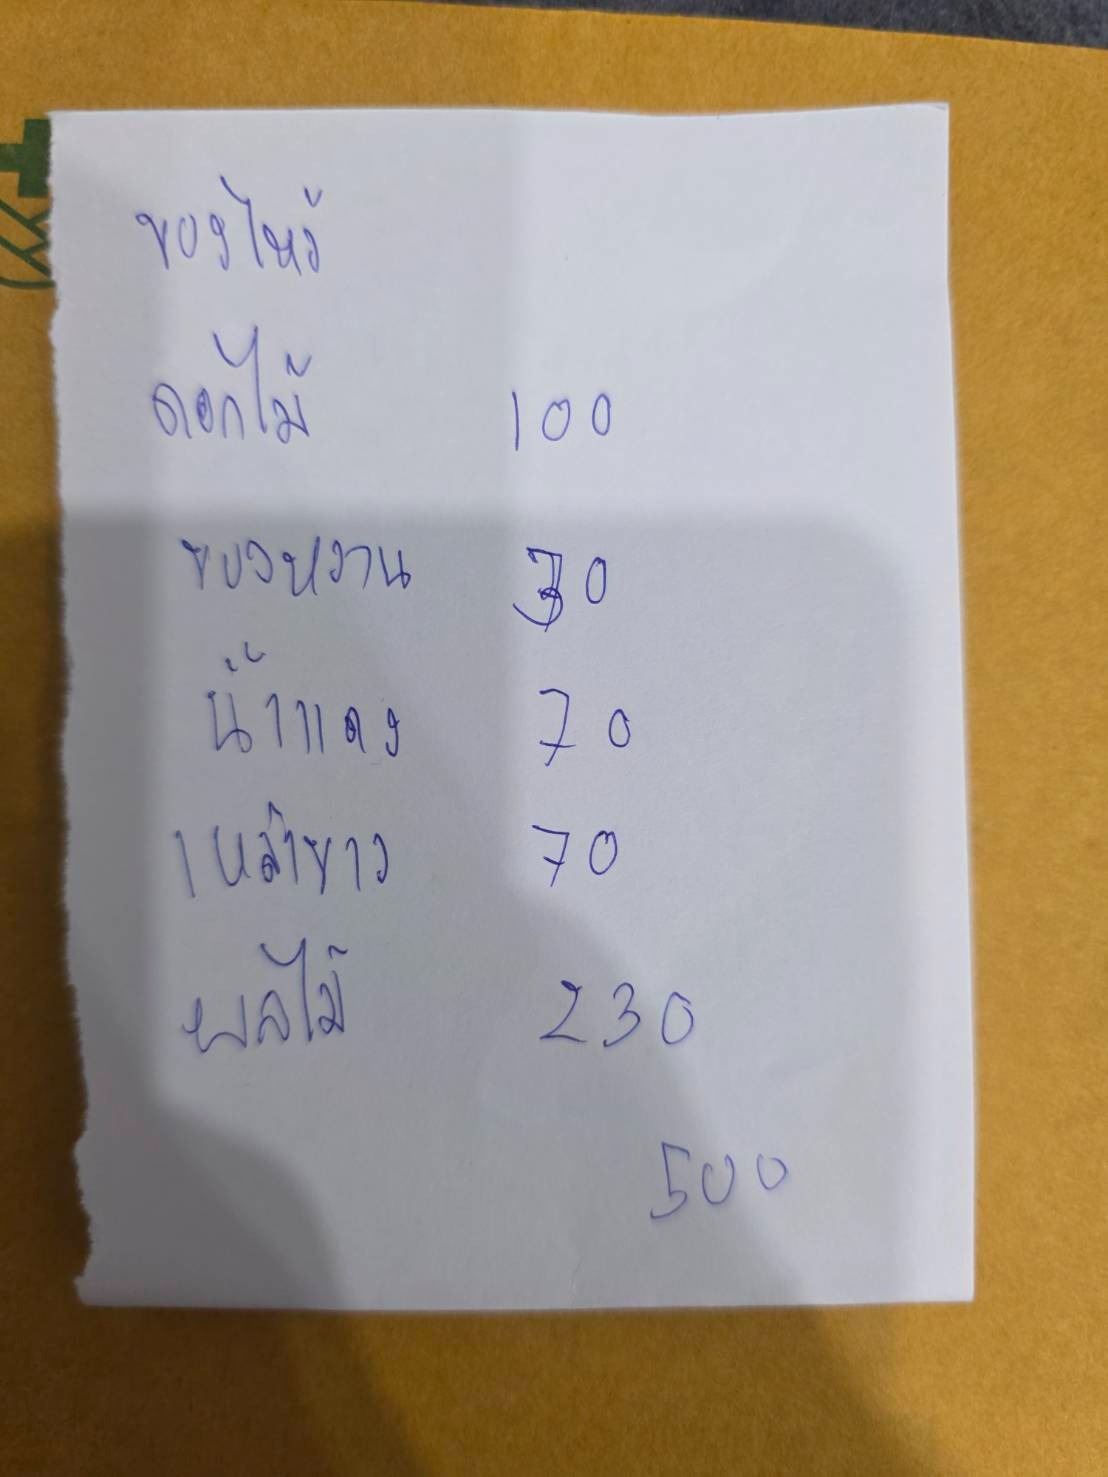 ของไหว้
ดอกไม้ 100
ของหวาน 30
น้ำแดง 70
เหล้าขาว 70
ผลไม้ 230
500